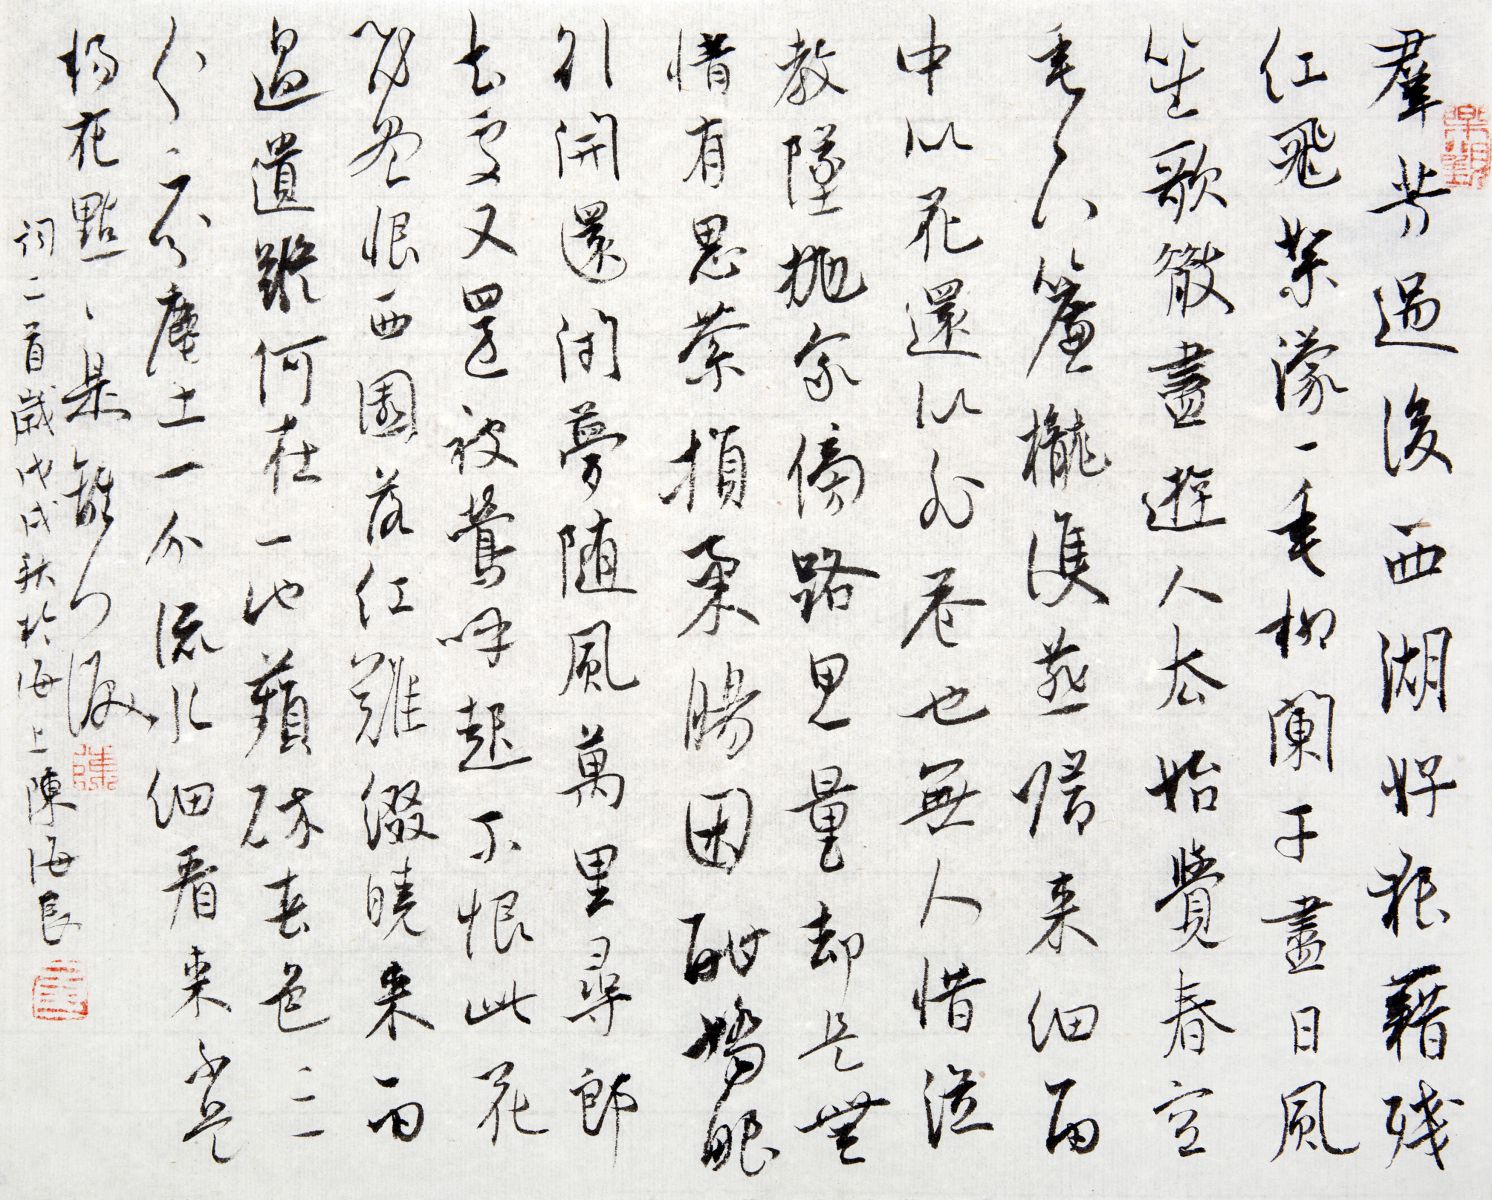 羣芳過後西湖好狼藉殘
红飛絮濛〻垂柳闌干盡日風
笙歌散盡遊人去始覺春空
垂下簾櫳雙燕歸来细雨
中似花還似非花也無人惜從
教墜抛家傍路思量却是無
情有思縈損柔腸困酣嬌眼
欲開還閉夢随風萬里尋郎
去處又還被鶯呼起不恨此花
飛盡恨西園落红難綴曉来雨
過遺蹤何在一池蘋碎春色三
分二分塵土一分流水细看来不是
楊花點〻是離人淚
词二首歲戊戌秋於海上陳海良
陳